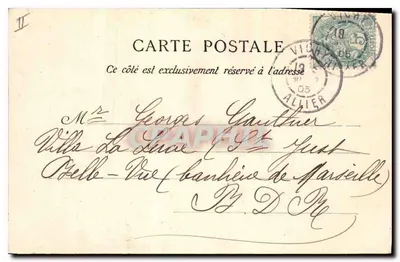 II
CARTE POSTALE
Ce côté est exclusivement réservé à l'adresse
VICHY
ALLIER
05
Mr Georges Gauthier
Villa La Leue St Just
Belle-Vue (banlieue de Marseille)
B D R